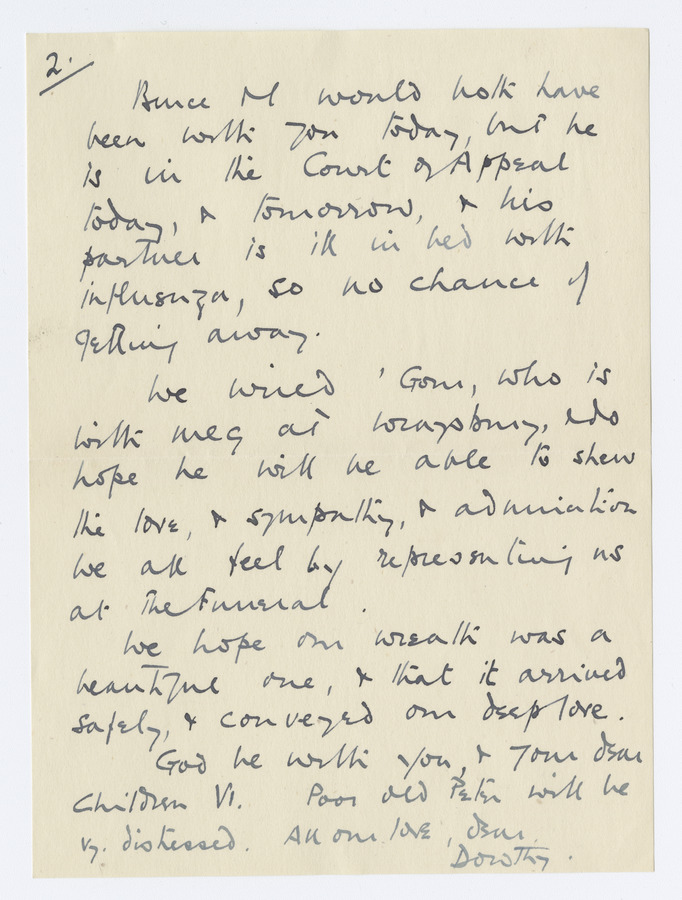 2.
Bruce & I would both have
been with you today, but he
is in the Court of Appeal
today, & tomorrow, & his
partner is ill in bed with
influenza, so no chance of
getting away.
We wired 'Gom, who is
with meg at Wraysbury, & do
hope he will be able to shew
the love, & sympathy, & admiration
we all feel by representing us
at the Funeral.
We hope our wreath was a
beautiful one, & that it arrived
safely, & conveyed our deep love.
God be with you, & your dear
Children Vi. Poor old Peter will be
vy. distressed. All our love, dear.
Dorothy.